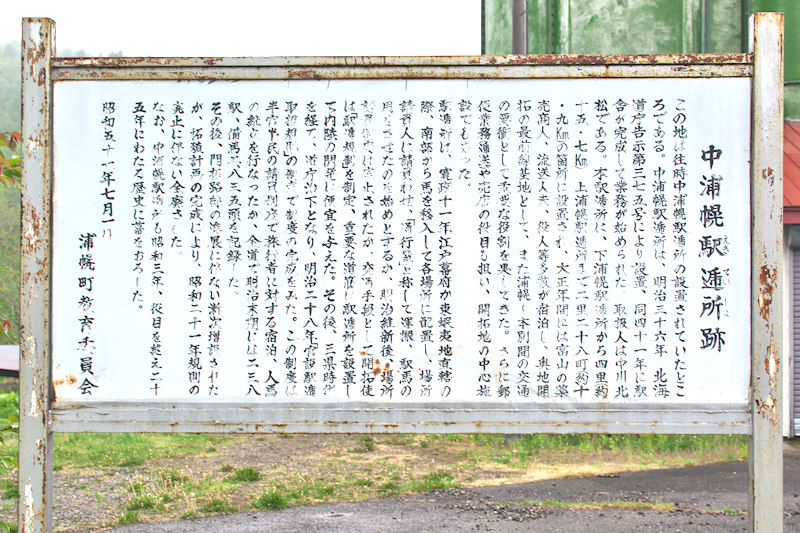 中浦幌駅逓所跡
えきていしょ
この地は往時中浦幌駅逓所の設置されていたとこ
ろである。中浦幌駅逓所は、明治三十六年 北海
道庁告示第三七五号により設置、同四十一年に駅
舎が完成して業務が始められた 取扱人は中川北
松である。本駅逓所は、下浦幌駅逓所から四里約
十五・七Km 上浦幌駅逓所まで二里二十八町約十
・九Kmの箇所に設置され、大正年間には富山の薬
売商人、流送人夫、役人等多数が宿泊し、奥地開
拓の最前線基地として、また浦幌〜本別間の交通
の要衝として重要な役割を果してきた。さらに郵
便業務逓送や売店の役目も担い、開拓地の中心施
設でもあった。
駅逓所は、寛政十一年江戸幕府が東蝦夷地直轄の
際、南部から馬を移入して各場所に配置し、場所
請負人に請負わせ、通行屋と称して運搬、駅馬の
用をさせたのを始めとするが、明治維新後、場所
請負制度は廃止されたが、交通手段として開拓使
は「駅逓規則」を制定、重要な道筋に駅逓所を設置し
て内陸の開発に便宜を与えた。その後、三県時代
を経て、道庁治下となり、明治二十八年官設駅逓
取扱規則の制定で制度の完成をみた。この制度は
半官半民の請負制度で旅行者に対する宿泊、人馬
の継立を行なったが、全道で明治末期には二三八
駅、備馬三八三五頭を記録した。
その後、開拓路線の進展に伴ない漸次増設された
が、拓殖計画の完成により、昭和二十一年規則の
廃止に伴ない全廃された。
なお、中浦幌駅逓所も昭和三年、役目を終え二十
五年にわたる歴史に幕をおろした。
昭和五十一年七月一日
浦幌町教育委員会